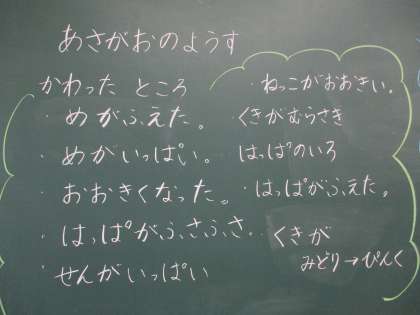 あさがおのようす
かわった ところ
・めがふえた。
・めがいっぱい。
・おおきくなった。
・はっぱがふさふさ。
・せんがいっぱい
・ねっこがおおきい。
・くきがむらさき
はっぱのいろ
・はっぱがふえた。
・くきが
みどり→ぴんく